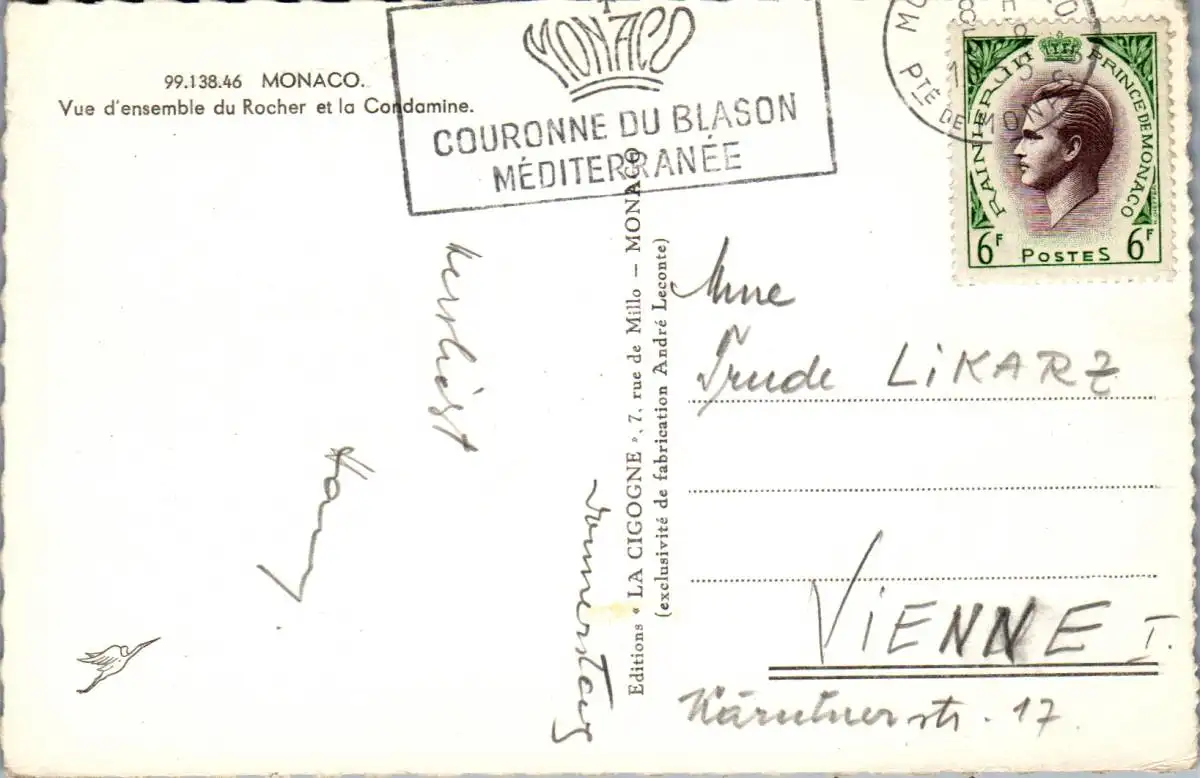 99.138.46 MONACO.
Vue d'ensemble du Rocher et la Condamine.
MONACO
COURONNE DU BLASON
MÉDITERRANÉE
PTÉ DE MON
RAINIER III PRINCE DE MONACO
6F POSTES 6F
Donnerstag
herzlichst
Editions " LA CIGOGNE ", 7, rue de Millo — MONACO
(exclusivité de fabrication André Leconte)
Mme
Trude LiKARZ
ViENNE I.
Kärntnerstr. 17